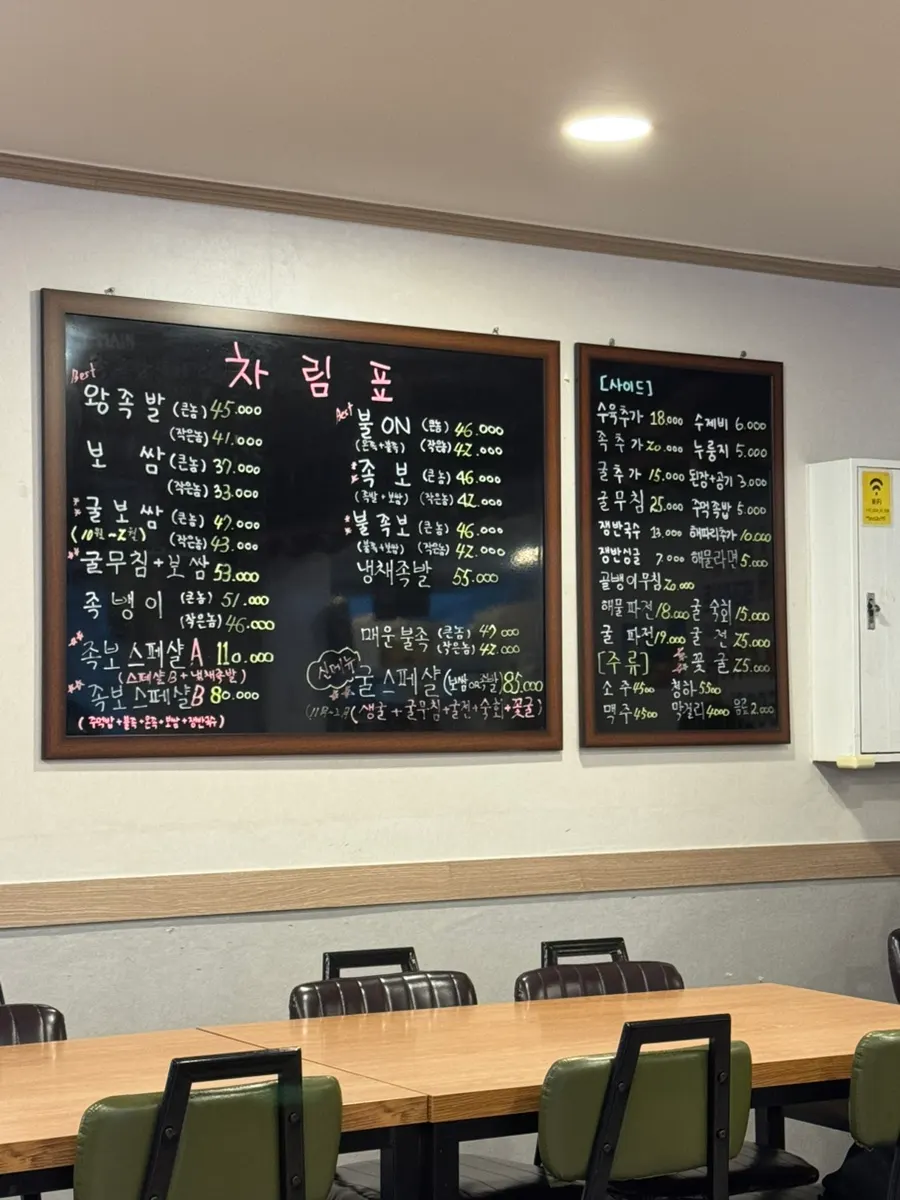 차림표
Best
왕족발 (큰놈) 45.000
(작은놈) 41.000
보쌈 (큰놈) 37.000
(작은놈) 33.000
굴보쌈 (큰놈) 47.000
(10월~2월) (작은놈) 43.000
굴무침+보쌈 53.000
족뱅이 (큰놈) 51.000
(작은놈) 46.000
족보스페샬A 110.000
(스페샬B+냉채족발)
족보스페샬B 80.000
(주먹밥+불족+온족+보쌈+쟁반국수)
Best
불ON (큰놈) 46.000
(온족+불족) (작은놈) 42.000
족보 (큰놈) 46.000
(족발+보쌈) (작은놈) 42.000
불족보 (큰놈) 46.000
(불족+보쌈) (작은놈) 42.000
냉채족발 55.000
매운불족 (큰놈) 47.000
(작은놈) 42.000
신메뉴
굴스페샬 (보쌈OR족발) 85.000
(생굴+굴무침+굴전+숙회+꽃굴)
[사이드]
수육추가 18.000 수제비 6.000
족추가 20.000 누룽지 5.000
굴추가 15.000 된장+공기 3.000
굴무침 25.000 주먹밥 5.000
쟁반국수 13.000 해파리추가 10.000
쟁반싱글 7.000 해물라면 5.000
골뱅이무침 20.000
해물파전 18.000 굴숙회 15.000
굴파전 19.000 굴전 25.000
[주류] 꽃굴 25.000
소주 4500 청하 5500
맥주 4500 막걸리 4000 음료 2.000